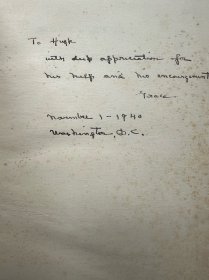 To Hugh
with deep appreciation for
his help and his encouragement
November 1 - 1940
Washington, D.C.